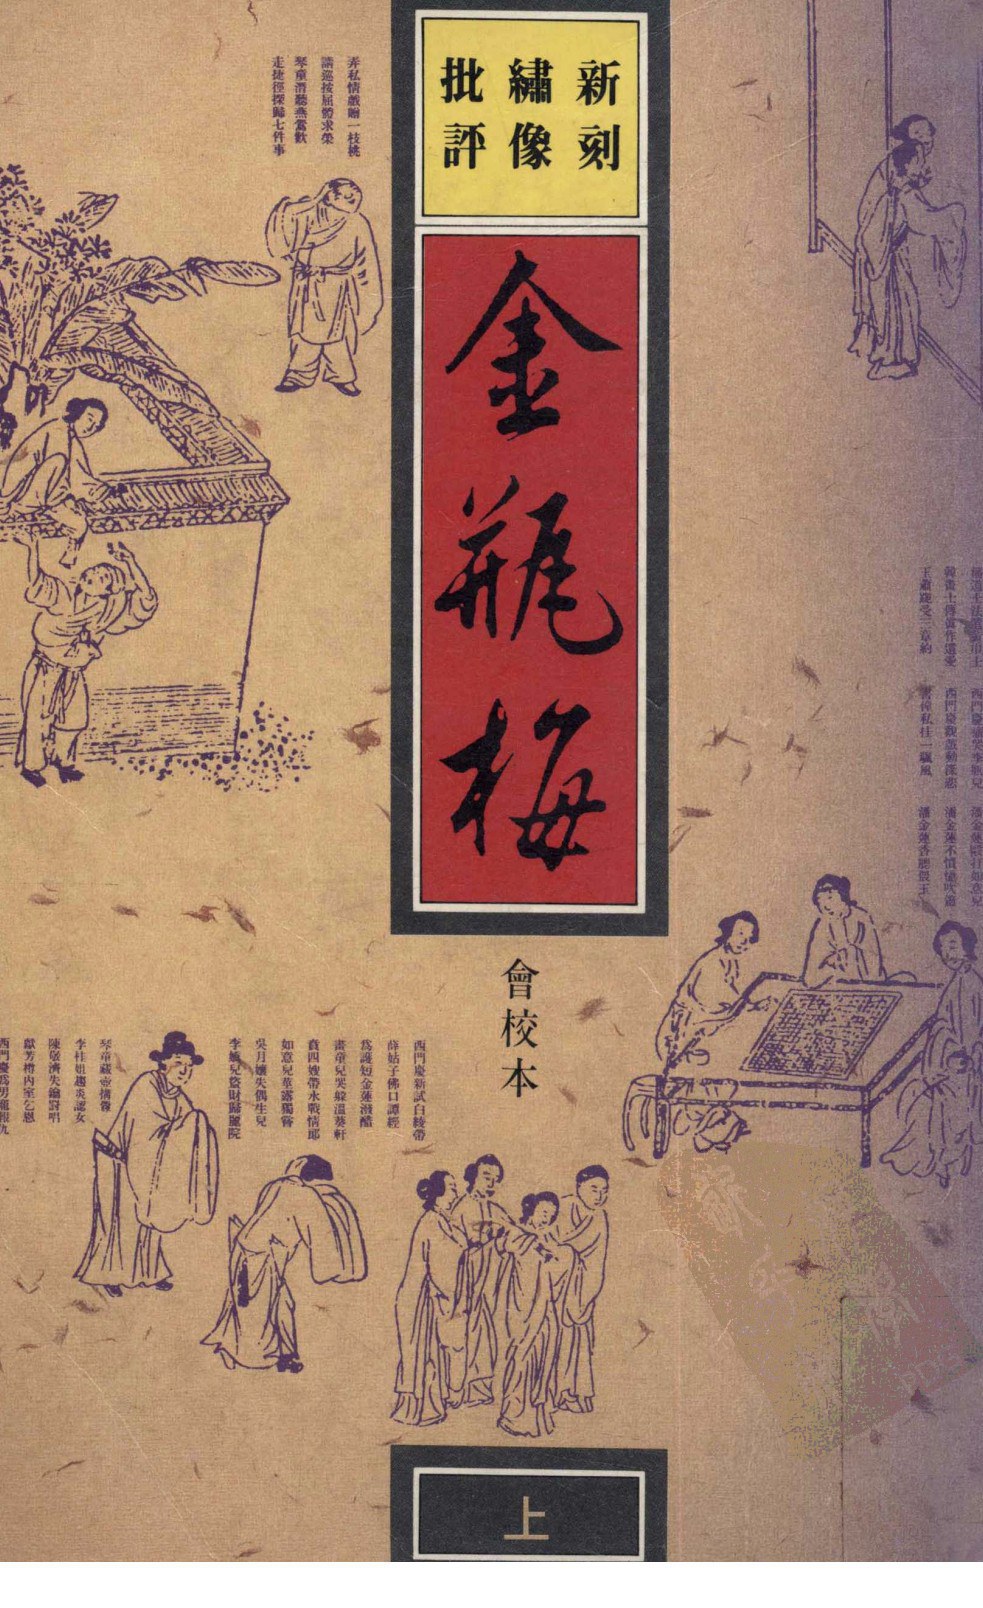 新刻
繡像
批評
金瓶梅
會校本
上
弄私情戲贈一枝桃
請巡按屈體求榮
琴童潛聽燕鶯歡
走捷徑探歸七件事
韓畫士傳真作遺愛
王三官義拜西門
西門慶觀戲動深悲
書僮私挂一帆風
潘金蓮不憤憶吹簫
潘金蓮香腮偎玉
西門慶新試白綾帶
薛姑子佛口談經
爲護短金蓮潑醋
畫童兒哭躲溫葵軒
賁四嫂帶水戰情郎
如意兒莖露獨嘗
吳月娘失偶生兒
李嬌兒盜財歸麗院
琴童藏壺搆釁
李桂姐趨炎認女
陳敬濟失鑰罰唱
獻芳樽內室乞恩
西門慶爲男寵報仇